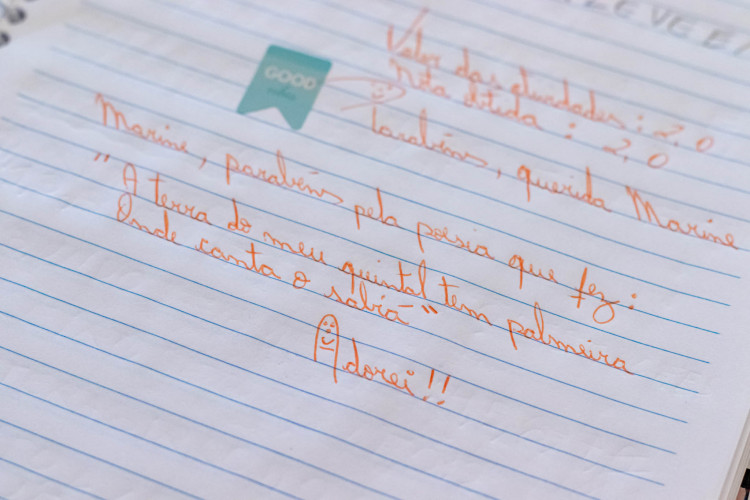 Valor das atividades : 2,0
Nota obtida : 2,0
GOOD
Parabéns, querida Marine
Marine, parabéns pela poesia que fez:
"A terra do meu quintal tem palmeira
Onde canta o sabiá"
Adorei!!